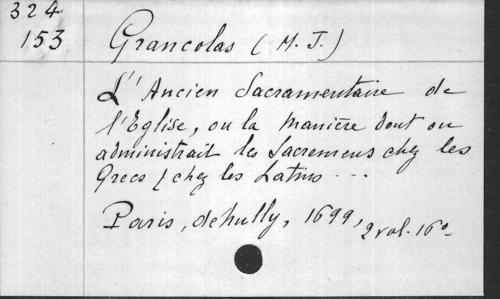 324
153
Grancolas (M. J.)
L'Ancien Sacramentaire de
l'Eglise, ou la Manière dont on
administrait les Sacremens chez les
Grecs / chez les Latins ...
Paris, dehully, 1699, 2 vol. 16º